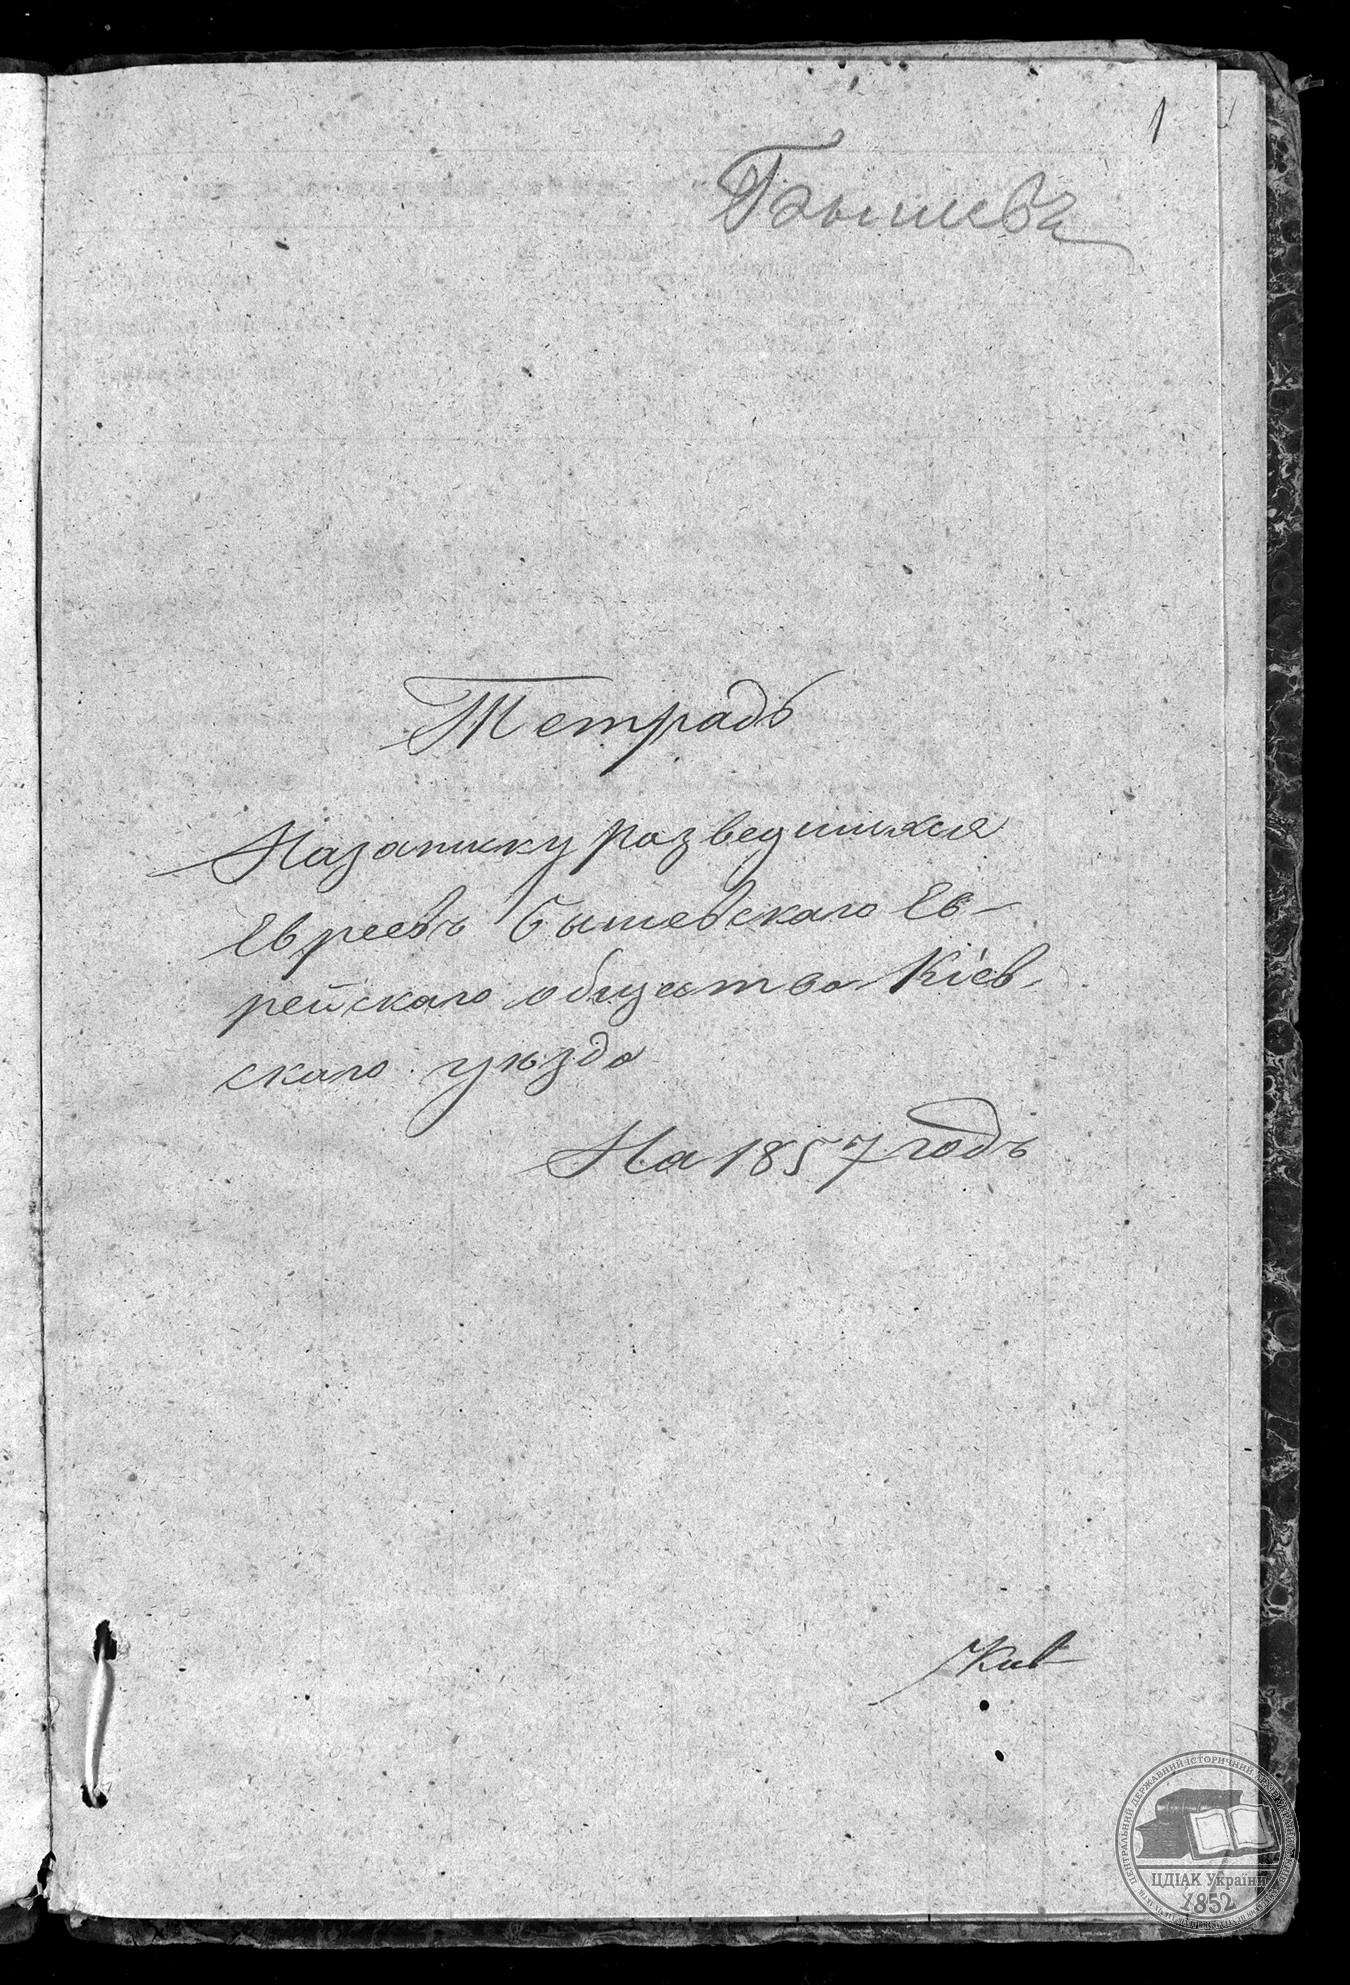 1
Бышева
Тетрадь
Назаписку разведшихся
Евреевъ Бышевскаго Ев-
рейскаго общества Кіев-
скаго уѣзда
На 1857 годъ
ЦЕНТРАЛЬНИЙ ДЕРЖАВНИЙ ІСТОРИЧНИЙ АРХІВ УКРАЇНИ
ЦДІАК України
1852